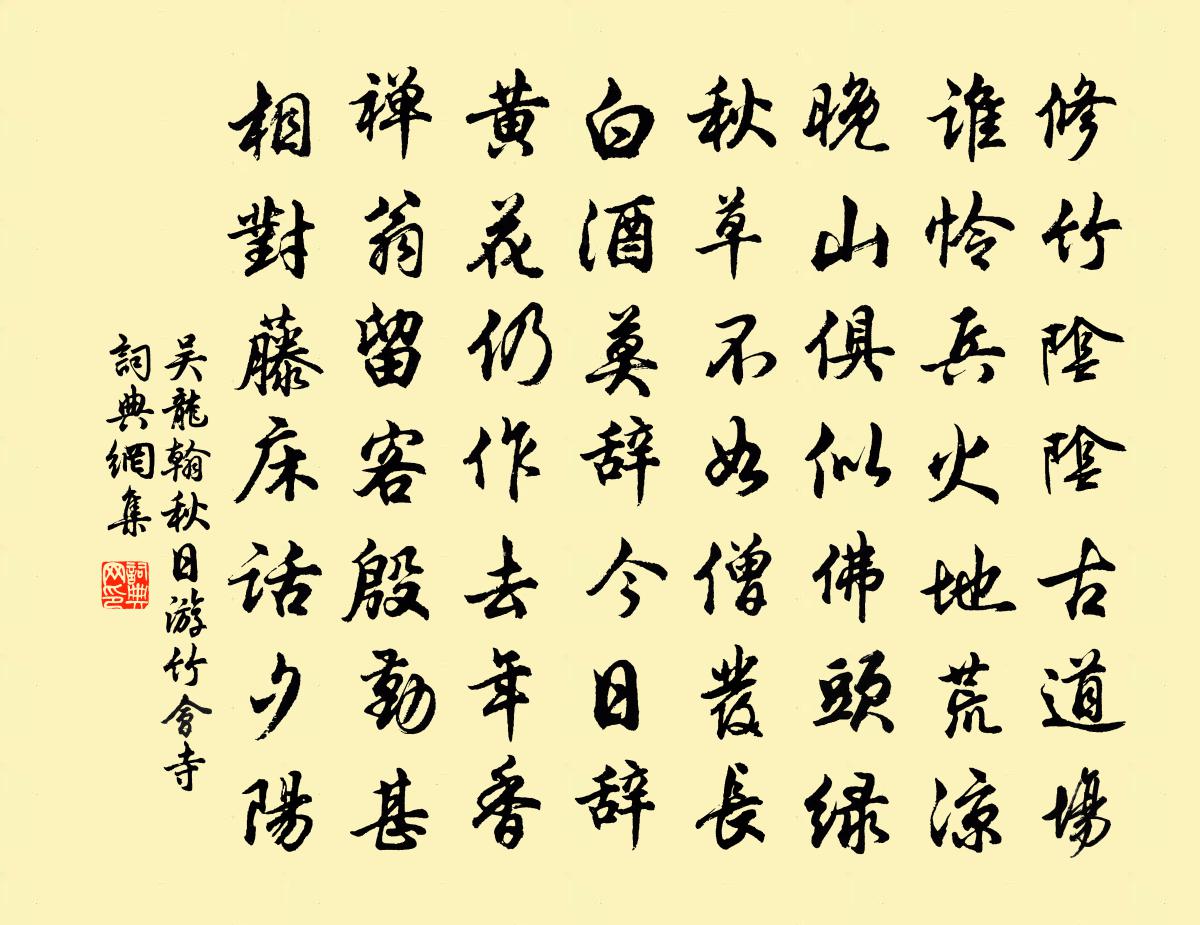 修竹陰陰古道場
谁怜兵火地荒凉
晚山俱似佛頭緑
秋草不如僧髮長
白酒莫辞今日辞
黄花仍作去年香
禅翁留客殷勤甚
相對藤床話夕陽
吴龍翰秋日游竹會寺
詞典網集
詞典网印